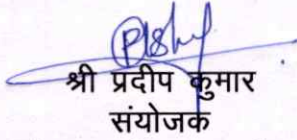 श्री प्रदीप कुमार
संयोजक